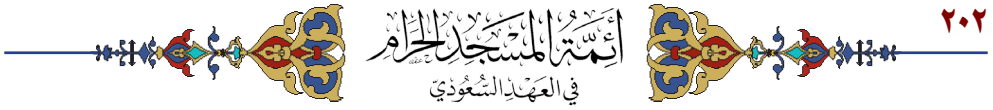 ٢٠٢
أَئِمَّةُ المَسْجِدِ الحَرَامِ
فِي العَهْدِ السُّعُودِيِّ